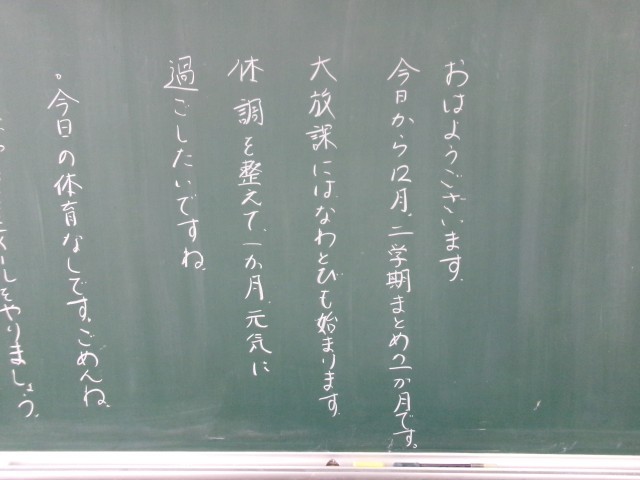 おはようございます。
今日から12月。二学期まとめの一か月です。
大放課にはなわとびも始まります。
体調を整えて、一か月、元気に
過ごしたいですね。
。今日の体育なしです。ごめんね。
をやりましょう。